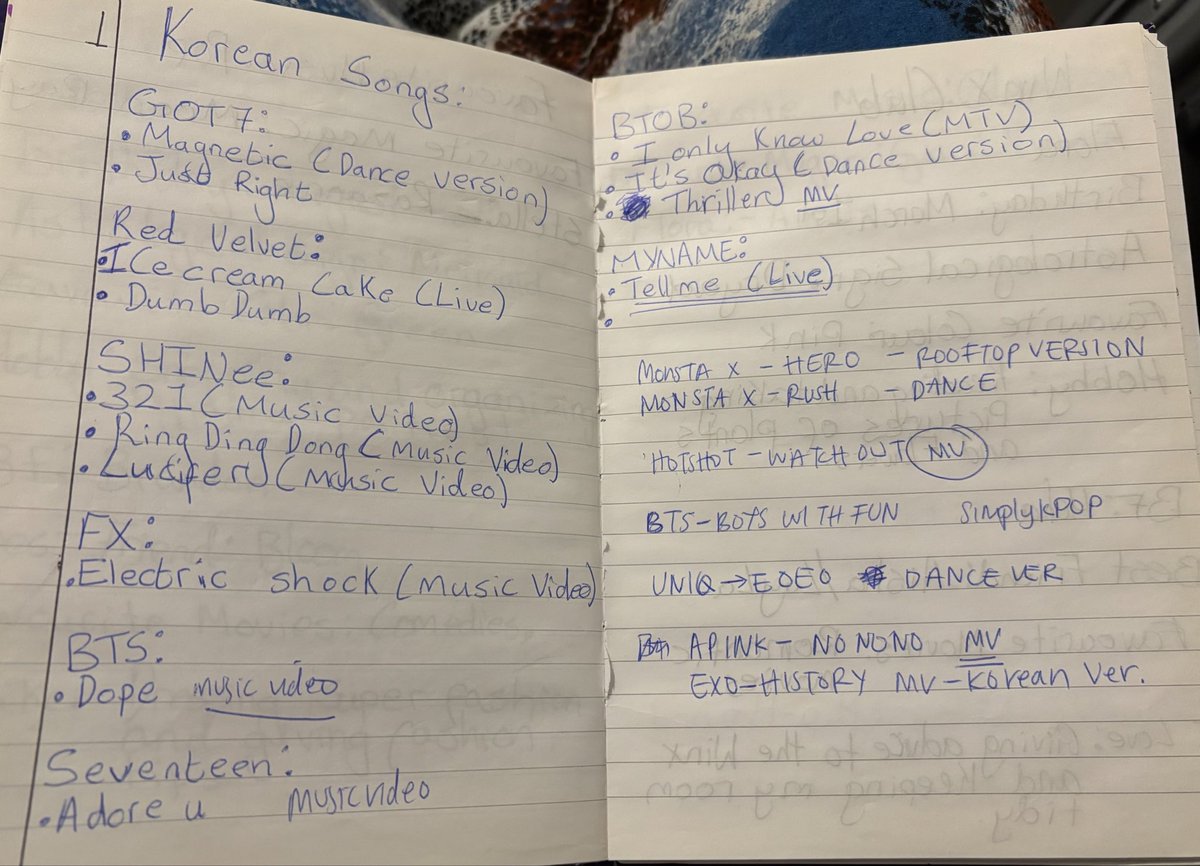 1
Korean Songs:
GOT7:
• Magnetic (Dance version)
• Just Right
Red Velvet:
• ICe cream Cake (Live)
• Dumb Dumb
SHINee:
• 321 (Music Video)
• Ring Ding Dong (Music Video)
• Lucifer (Music Video)
FX:
• Electric shock (Music Video)
BTS:
• Dope music video
Seventeen:
• Adore u music video
BTOB:
• I only Know Love (MTV)
• It's Okay (Dance version)
• Thriller MV
MYNAME:
• Tell me (Live)
•
MONSTA X - HERO - ROOFTOP VERSION
MONSTA X - RUSH - DANCE
HOTSHOT - WATCH OUT MV
BTS - BOYS WITH FUN SimplyKPOP
UNIQ → EOEO DANCE VER
APINK - NO NO NO MV
EXO - HISTORY MV - Korean Ver.